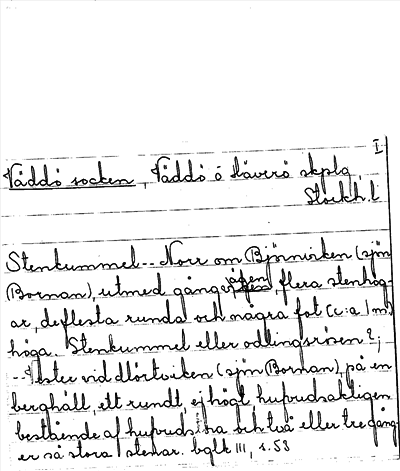 I
Väddö socken, Väddö o Häverö skplg
Stockh. l
Stenkummel -- Norr om Björnviken (sjön
Bornan), utmed gångvägen, flera stenhög-
ar, de flesta runda och några fot (c:a 1 m.)
höga. Stenkummel eller odlingsrösen?;
vid (sjön Bornan), på en
berghäll, ett rundt, ej högt hufvudsakligen
bestående af hufvudstora och två eller tre gång-
er så stora stenar. bglk III, s. 53